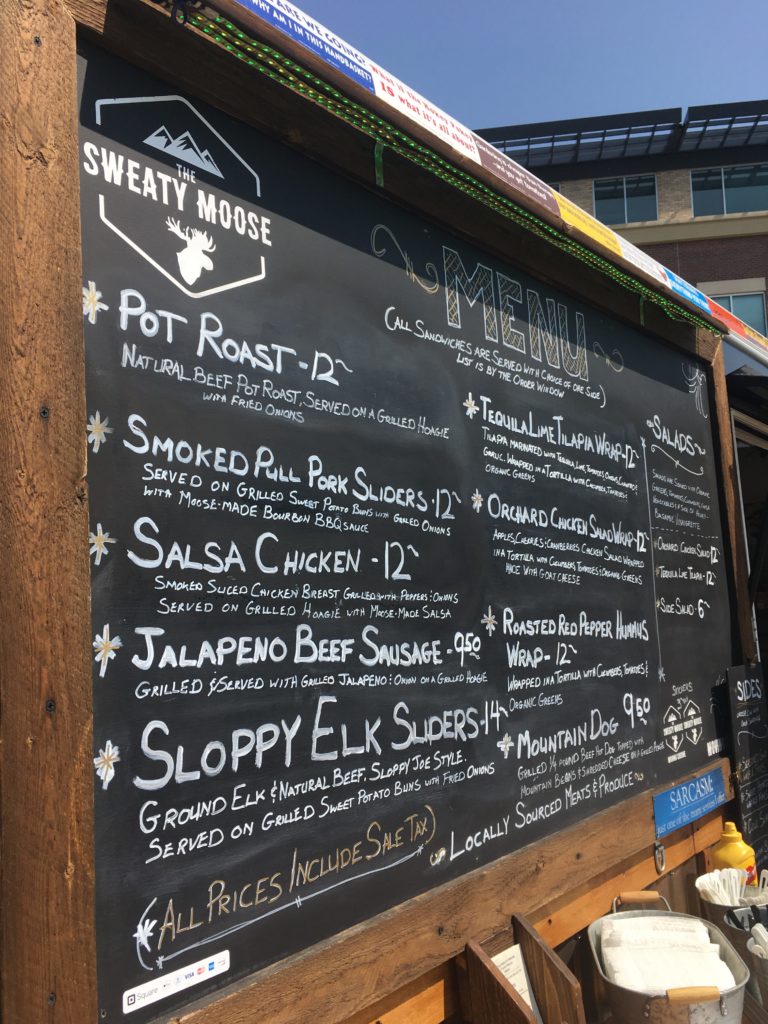 ARE WE GOING?
WHY AM I IN THIS HANDBASKET?
What if the Hokey Pokey
IS what it's all about?
THE
SWEATY MOOSE
MENU
(ALL SANDWICHES ARE SERVED WITH CHOICE OF ONE SIDE
LIST IS BY THE ORDER WINDOW)
POT ROAST - 12
NATURAL BEEF POT ROAST, SERVED ON A GRILLED HOAGIE
WITH FRIED ONIONS
SMOKED PULL PORK SLIDERS - 12
SERVED ON GRILLED SWEET POTATO BUNS WITH GRILLED ONIONS
WITH MOOSE-MADE BOURBON BBQ SAUCE
SALSA CHICKEN - 12
SMOKED SLICED CHICKEN BREAST GRILLED WITH PEPPERS & ONIONS
SERVED ON GRILLED HOAGIE WITH MOOSE-MADE SALSA
JALAPENO BEEF SAUSAGE - 9.50
GRILLED & SERVED WITH GRILLED JALAPENO & ONION ON A GRILLED HOAGIE
SLOPPY ELK SLIDERS - 14
GROUND ELK & NATURAL BEEF. SLOPPY JOE STYLE.
SERVED ON GRILLED SWEET POTATO BUNS WITH FRIED ONIONS
(ALL PRICES INCLUDE SALE TAX)
Square VISA
TEQUILA LIME TILAPIA WRAP - 12
TILAPIA MARINATED WITH TEQUILA, LIME, TOMATOES, ONIONS, CILANTRO &
GARLIC. WRAPPED IN A TORTILLA WITH CUCUMBER, TOMATOES &
ORGANIC GREENS
ORCHARD CHICKEN SALAD WRAP - 12
APPLES, CHERRIES & CRANBERRIES CHICKEN SALAD WRAPPED
IN A TORTILLA WITH CUCUMBERS, TOMATOES & ORGANIC GREENS
WITH GOAT CHEESE
ROASTED RED PEPPER HUMMUS
WRAP - 12
WRAPPED IN A TORTILLA WITH CUCUMBERS, TOMATOES, &
ORGANIC GREENS
MOUNTAIN DOG 9.50
GRILLED 1/4 POUND BEEF HOT DOG TOPPED WITH
MOUNTAIN BEANS & SHREDDED CHEESE ON A GRILLED HOAGIE
LOCALLY SOURCED MEATS & PRODUCE
SALADS
SALADS ARE SERVED WITH ORGANIC
GREENS, TOMATOES, CUCUMBERS,
BALSAMIC VINAIGRETTE
ORCHARD CHICKEN SALAD - 12
TEQUILA LIME TILAPIA - 12
SIDE SALAD - 6
STICKERS
SIDES
SARCASM:
just one of the many services I offer.